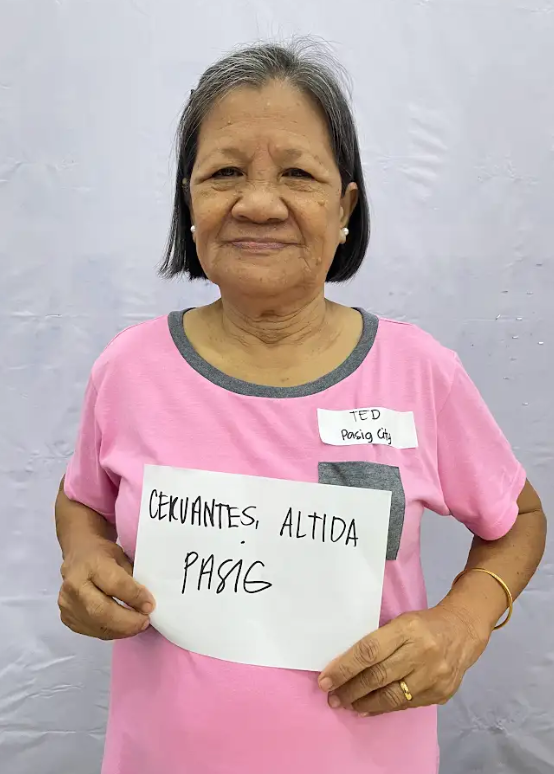 TED
Pasig City
CERVANTES, ALTIDA
PASIG